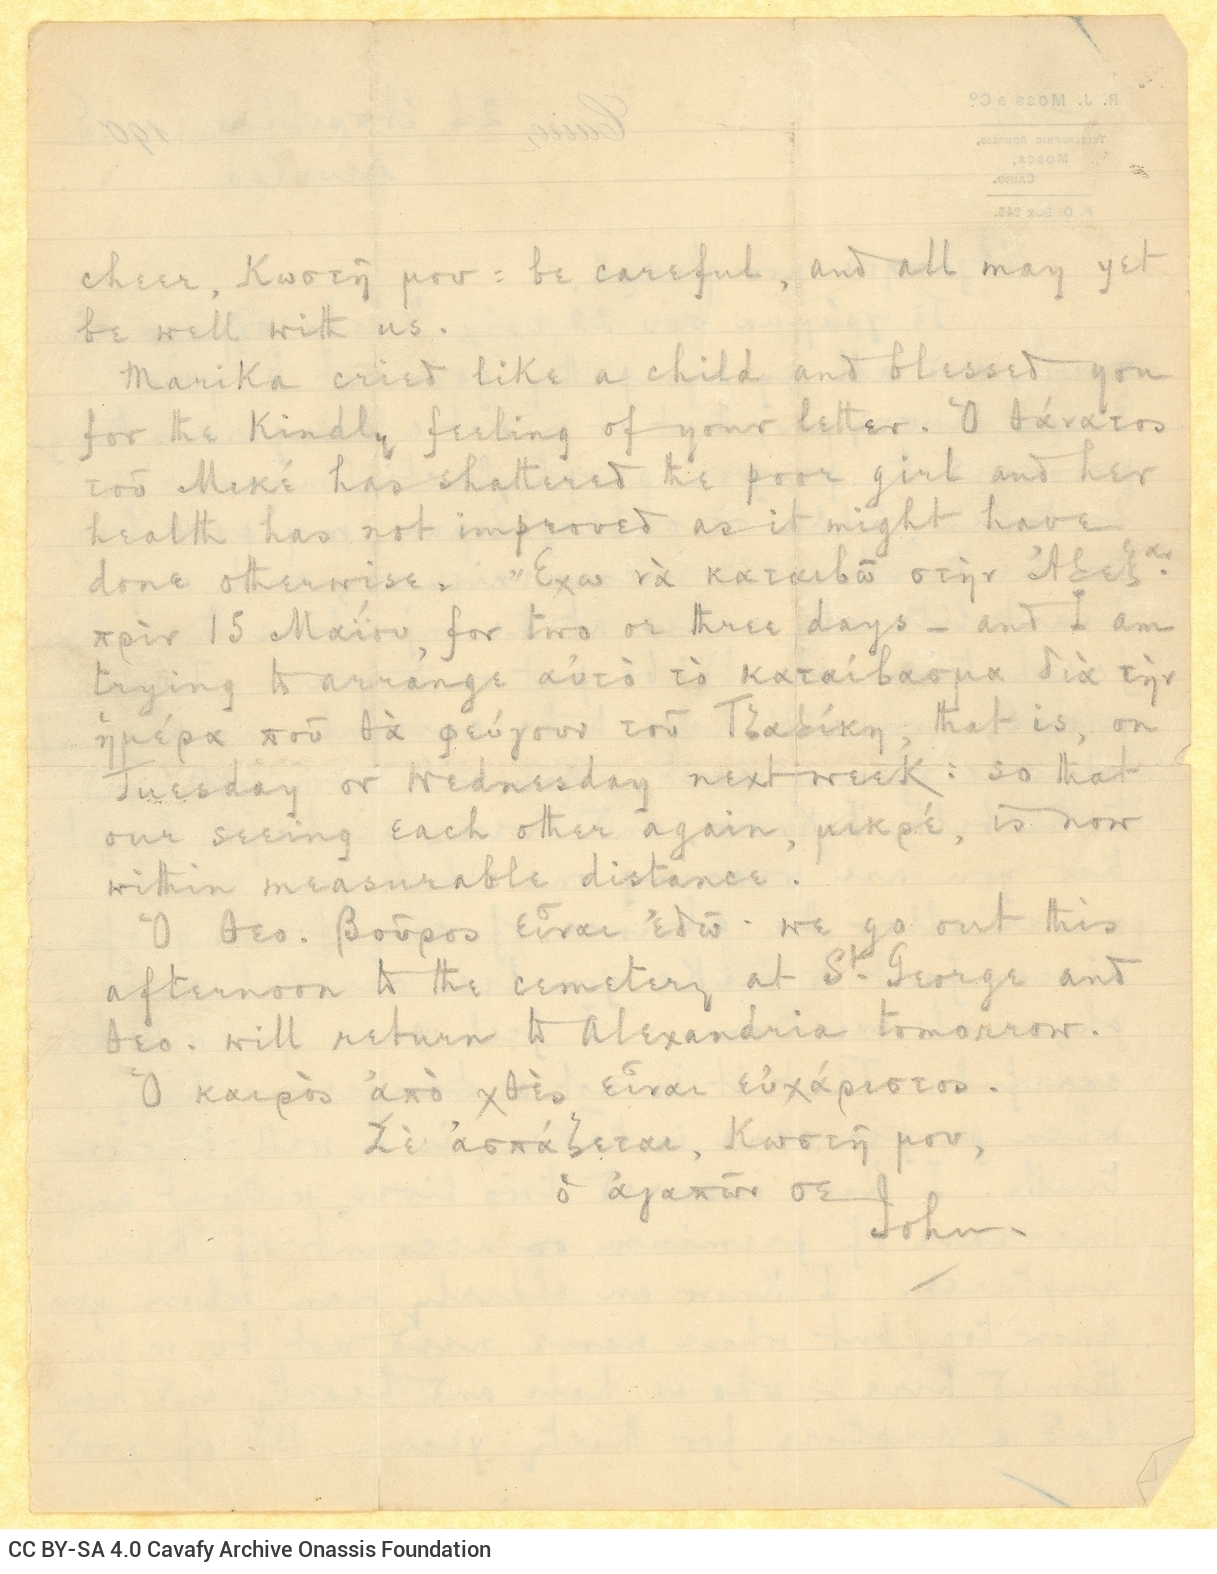 cheer, Κωστῆ μου : be careful, and all may yet
be well with us.
Marika cried like a child and blessed you
for the kindly feeling of your letter. Ὁ θάνατος
τοῦ Μικέ has shattered the poor girl and her
health has not improved as it might have
done otherwise. Ἔχω νὰ καταιβῶ στὴν Ἀλεξ
πρὶν 15 Μαΐου, for two or three days – and I am
trying to arrange αὐτὸ τὸ καταίβασμα διὰ τὴν
ἡμέρα ποῦ θὰ φεύγουν τοῦ Τζαδίκη, that is, on
Tuesday or Wednesday next week : so that
our seeing each other again, μικρέ, is now
within measurable distance.
Ὁ Θεο. Βοῦρος εἶναι ἐδῶ · we go out this
afternoon to the cemetery at St. George and
Θεο. will return to Alexandria tomorrow.
Ὁ καιρὸς ἀπὸ χθὲς εἶναι εὐχάριστος.
Σὲ ἀσπάζεται, Κωστῆ μου,
ὁ ἀγαπῶν σε
John.
R. J. Moss & Co.
Telegraphic Address,
MOSCA,
CAIRO.
P. O. Box 245.
Cairo, 190
CC BY-SA 4.0 Cavafy Archive Onassis Foundation